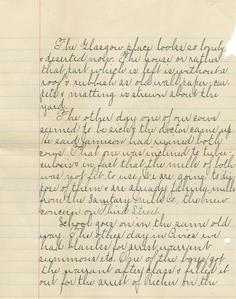 The Glasgow place looks so lonely
& deserted now. The house or rather
that part which is left is without a
roof & rubbish as old wall paper, car
pets & matting is strewn about the
yard.
The other day one of our cows
seemed to be sick; the doctor came up.
He said Jamieson had ruined both
cows. That one was inclined to tuber-
culosis & in fact that the milk of both
was not fit to use. We are going to dis
pose of them & are already taking milk
from the Sanitary Milk Co. the new
concern on Third Street.
School goes on in the same old
way. The other day in Civics we
had blanks for arrest, warrant
summons etc. One of the boys got
the warrant after class & filled it
out for the arrest of Richer on the